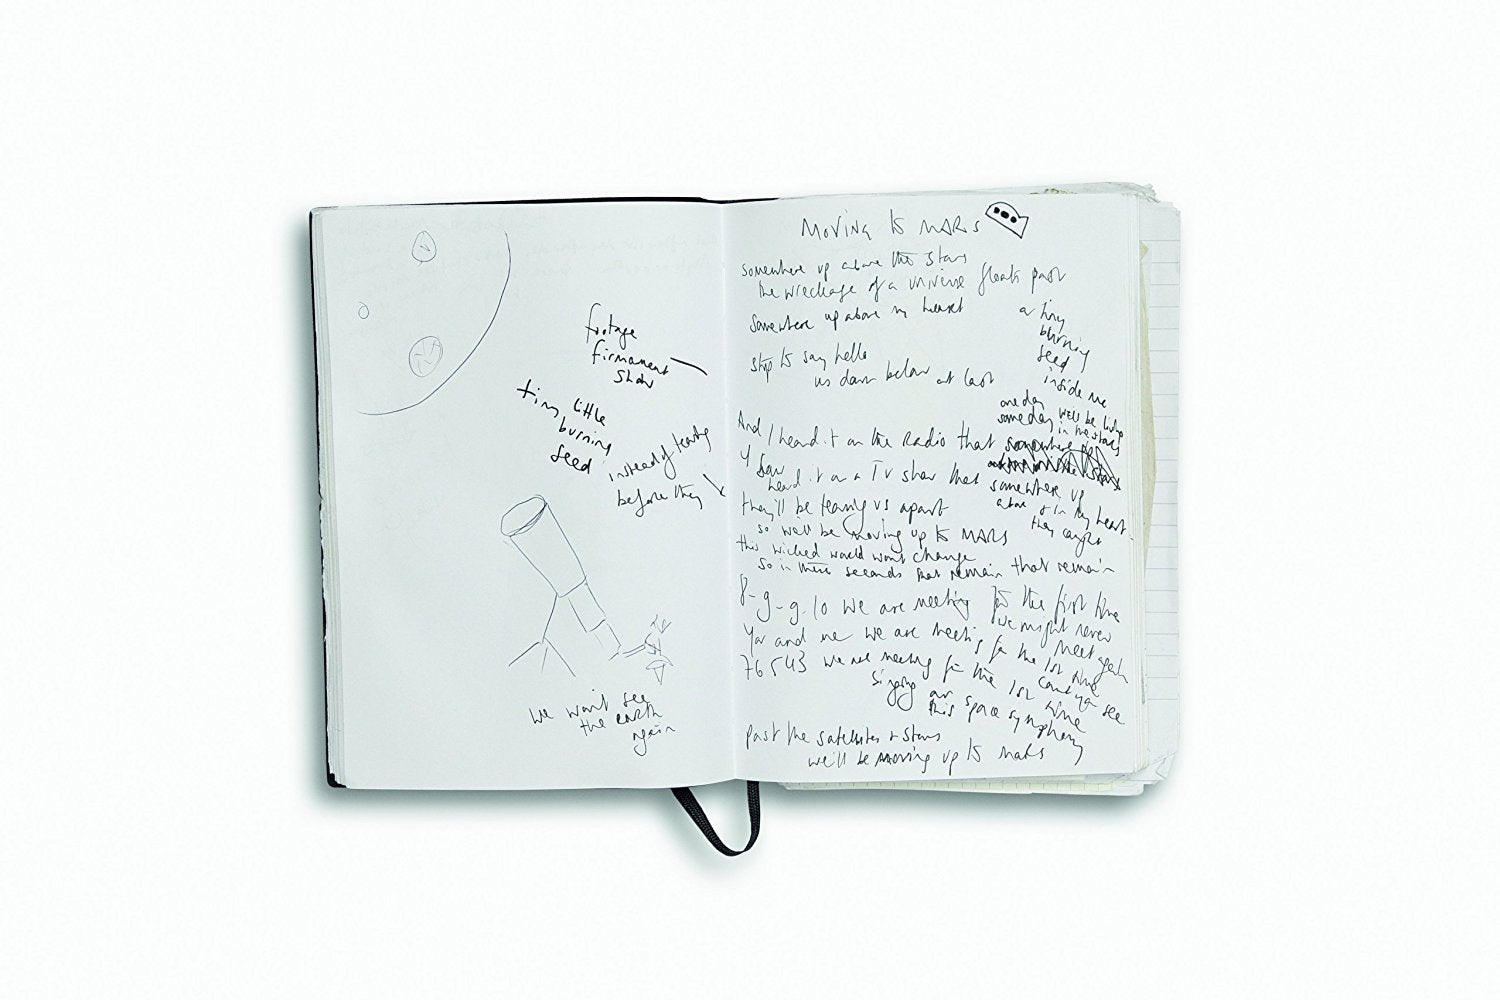 footage
firmament
show
tiny little
burning
seed
instead of tearing
before they
we won't see
the earth
again
Moving to MARS
somewhere up above the stars
the wreckage of a universe floats past
somewhere up above my heart
a tiny
burning
seed
inside me
stop to say hello
us down below at last
one day we'll be living
someday in the stars
And I heard it on the radio that somewhere
I saw
heard it on a TV show that somewhere up
above & in my heart
they caught
they'll be tearing us apart
so we'll be moving up to MARS
this wicked world won't change
so in these seconds that remain that remain
8-9-9.10 we are meeting for the first time
we might never
meet again
You and me we are meeting for the 1st time
76543 we are meeting for the 1st time
can't you see
singing our
this space symphony
past the satellites & stars
we'll be moving up to mars